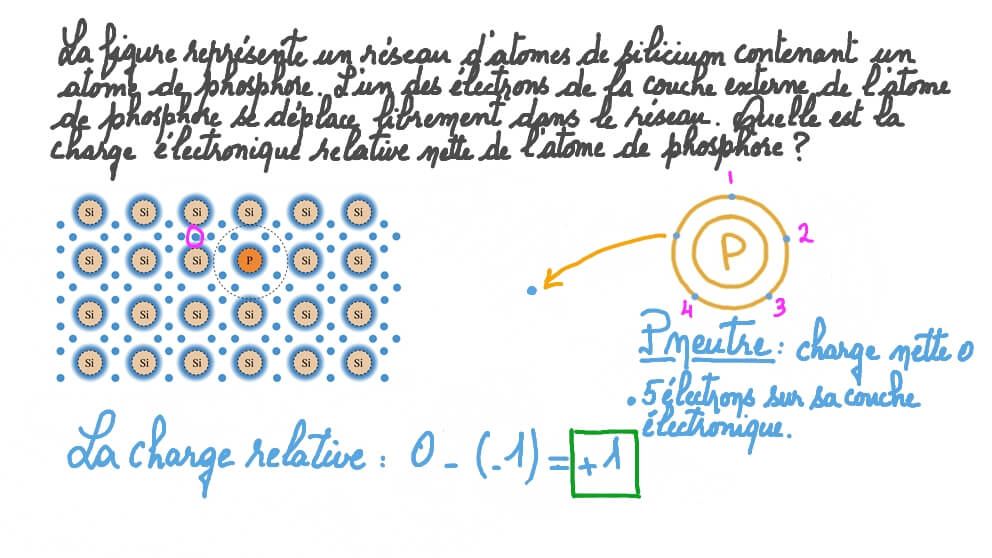 La figure représente un réseau d'atomes de silicium contenant un
atome de phosphore. L'un des électrons de la couche externe de l'atome
de phosphore se déplace librement dans le réseau. Quelle est la
charge électronique relative nette de l'atome de phosphore ?
Si Si Si Si Si Si
Si Si Si P Si Si
Si Si Si Si Si Si
Si Si Si Si Si Si
1
P 2
4 3
P neutre : charge nette 0
. 5 électrons sur sa couche
électronique.
La charge relative : 0 - (-1) = +1